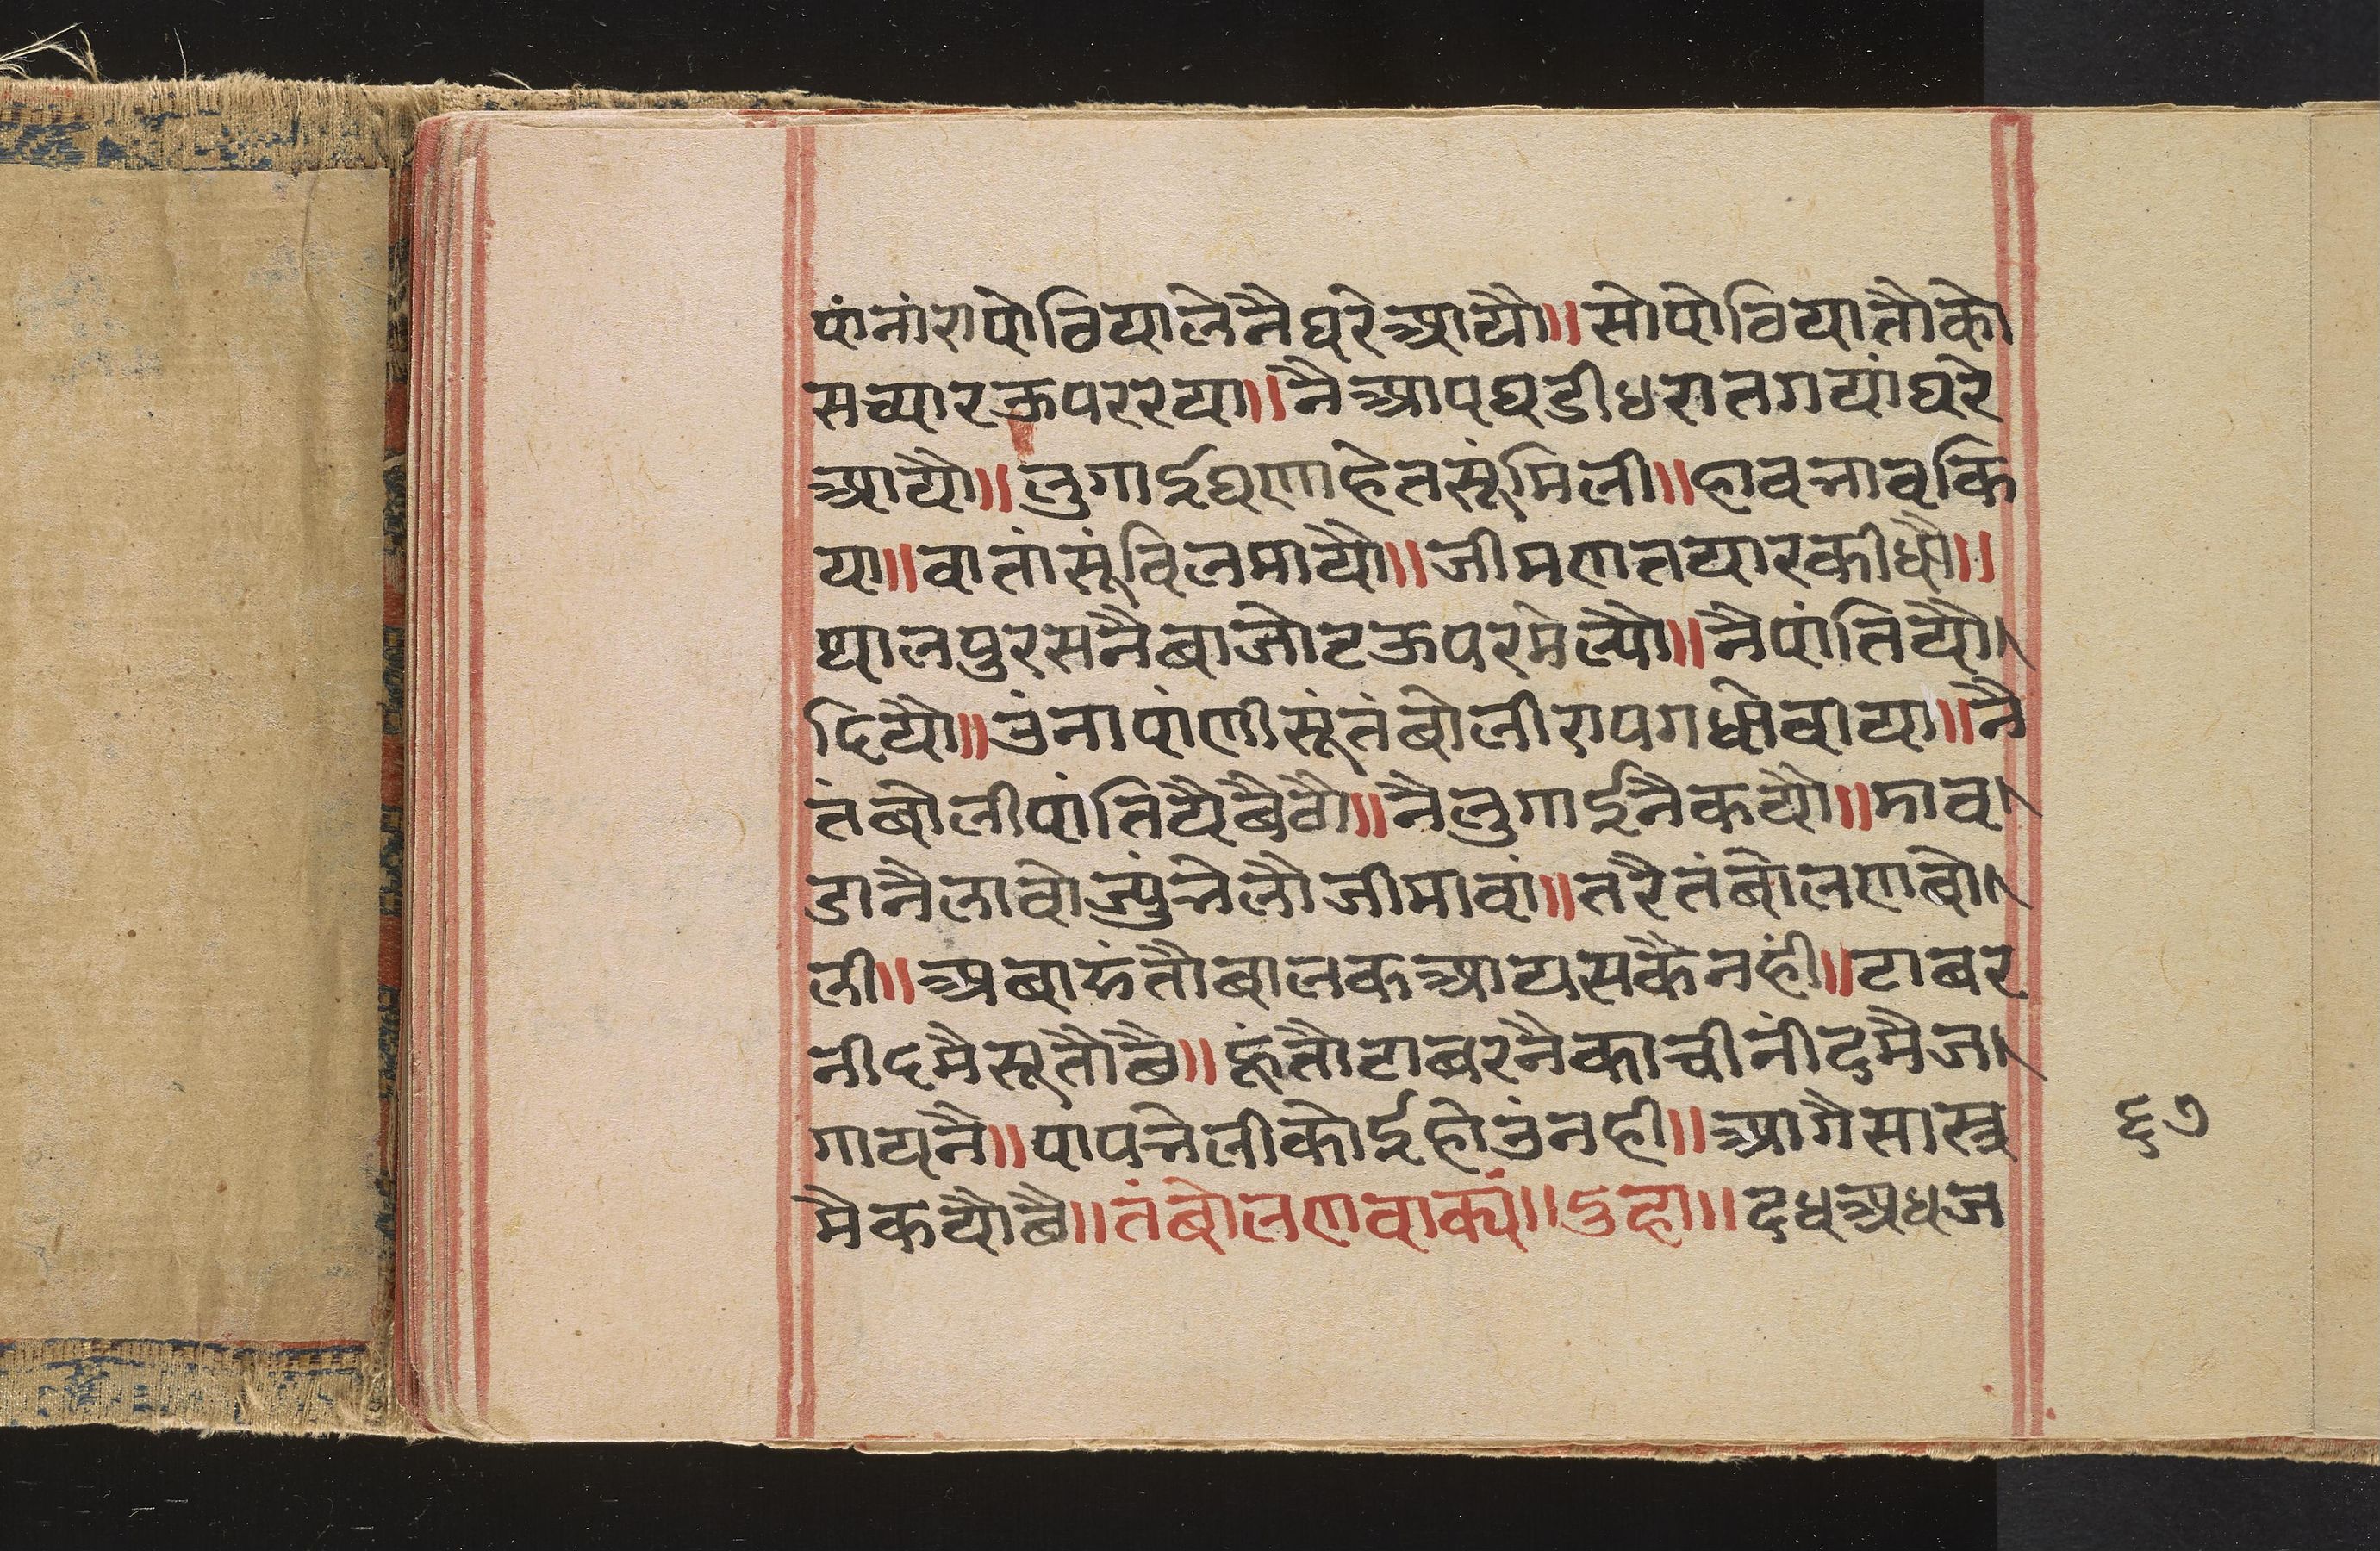 पांनांरापोठियालेनैघरेआयौ॥सोपोठियातौको
सच्यारऊपररया॥नैआपघडीधरातगयांघरे
आयौ॥लुगाईघणाहेतसूंमिली॥हावनावकि
या॥वातांसूंविलमायौ॥जीमणतयारकीधौ॥
थालपुरसनैबाजोटऊपरमेल्यो॥नैपांतियौ।
दियौ॥उंनापांणीसूंतंबोलीरापगधोवाया॥नै
तंबोलीपांतियैबैठौ॥नैलुगाईनैकयौ॥माव।
डानैलावोज्युंनेलौजीमावां॥तरैतंबोलणबो।
ली॥अबारुंतौबालकआयसकैनहीं॥टाबर
नीदमैसूतौछै॥हूंतौटाबरनैकाचीनींदमैज।
गायनै॥पापनेलीकोईहोउंनही॥आगैसास्त्र
मैकयौछै॥तंबोलणवाक्यं॥दुहा॥दधअधज
६७